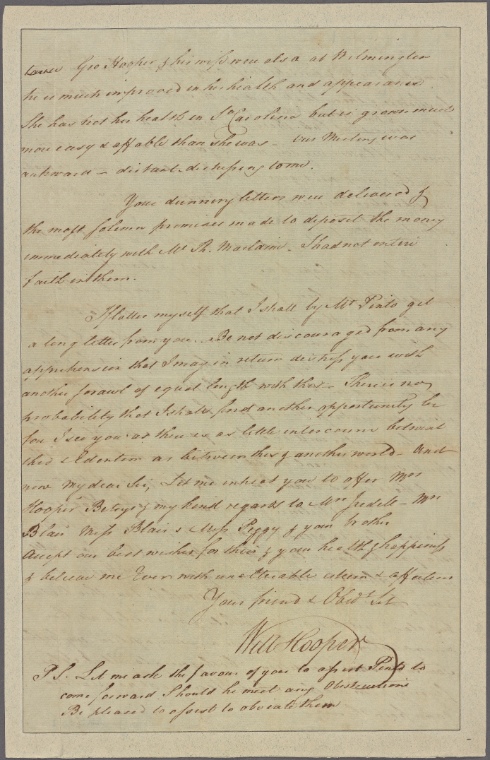 Geo Hooper & his wife were also at Wilmington
he is much improved in his health and appearance
She has not her health in So Carolina but is grown much
more easy & affable than she was — our Meeting was
awkward — distant — distressing to me.
Your dunning letters were delivered &
the most solemn promises made to deposit the money
immediately with Mr A. Maclaine. I had not entire
faith in them.
I flatter myself that I shall by Mr get
a long letter from you. Do not discouraged from any
apprehension that I may in return distress you with
another scrawl of equal length with this. There is no
probability that I shall find another opportunity be
fore I see you as there is as little intercourse betwixt
this & Edenton as between this & another world — And
now my dear Sir, Let me intreat you to offer Mrs
Hooper Betsey & my kind regards to Mrs Iredell — Mrs
Blair Miss Blair & Miss Peggy & your brother
accept our best wishes for their & your health & happiness
& believe me Ever with unalterable esteem & affection
Your friend & Obedt St
Will Hooper
P.S. Let me ask the favour of you to assist to
come forward Should he meet any Obstructions
Be pleased to assist to obviate them